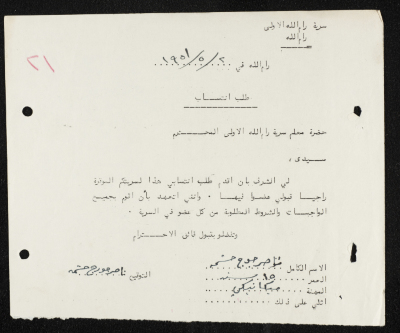 سرية رام الله الاولى
رام الله
٢١
رام الله في ٢/٥/١٩٥١
طلب انتساب
حضرة معلم سرية رام الله الاولى المحترم
سيدي ،
لي الشرف بان اقدم طلب انتسابي هذا لسريتكم الموقرة
راجيا قبولي عضوا فيها ، وانني اتعهد بأن اقوم بجميع
الواجبات والشروط المطلوبة من كل عضو في السرية .
وتفضلوا بقبول فائق الاحترام
الاسم الكامل ناصر جريس
العمر ١٥ سنه
المهنة ميكانيكي
التوقيع ناصر جريس
اثني على ذلك